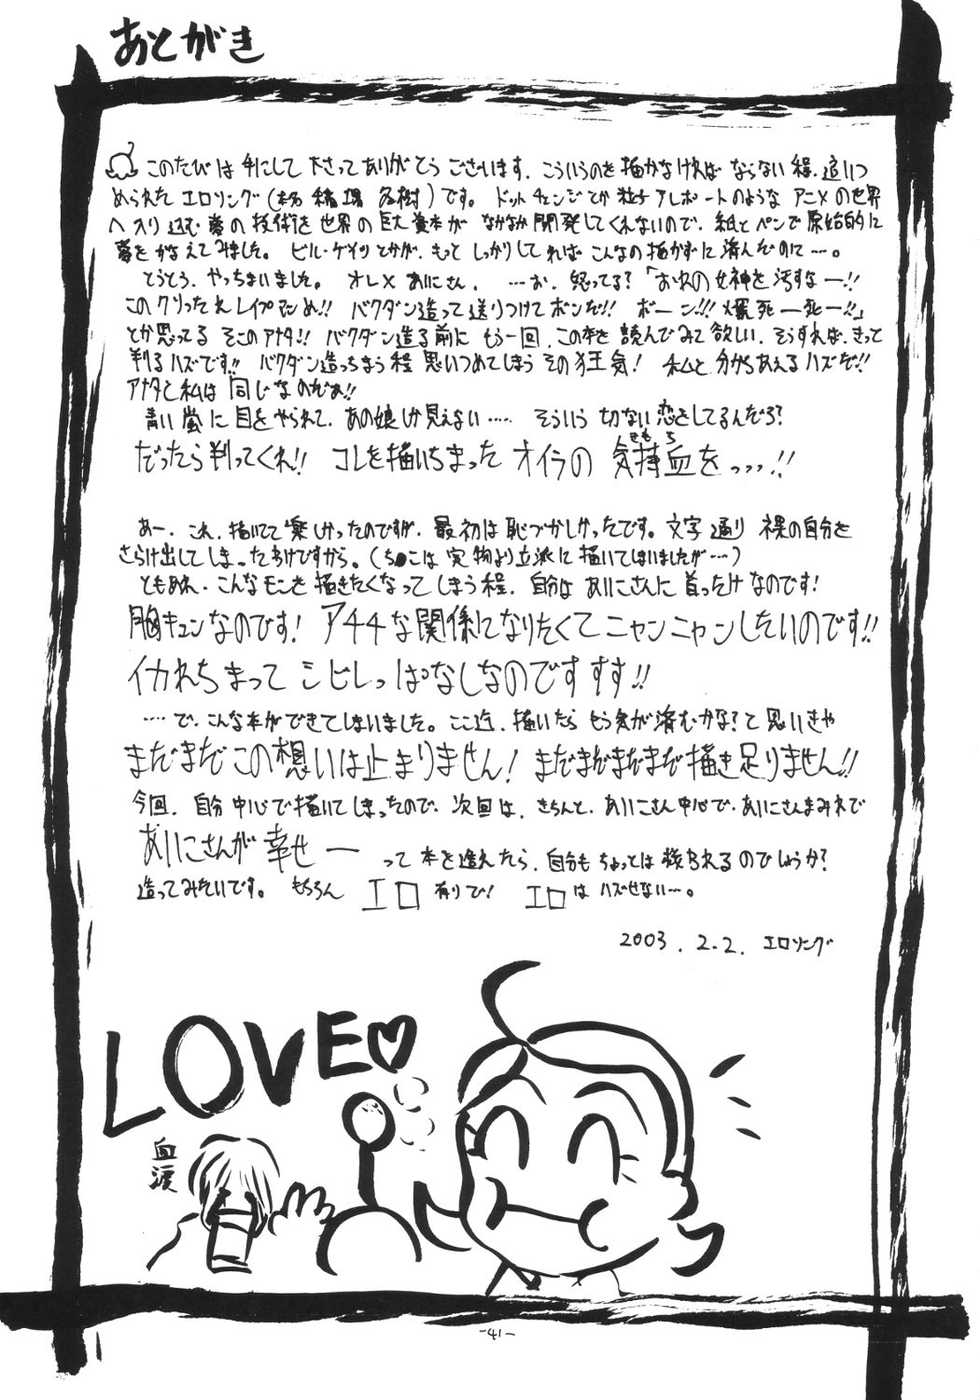 あとがき
このたびは手にして下さってありがとうございます。こういうのを描かなければならない程、追いつ
められたエロソング(本名 稲場 冬樹)です。ドットチェンジとか粒子アレポートのようなアニメの世界
へ入り込む夢の技術を世界の巨大資本がなかなか開発してくれないので、紙とペンで原始的に
夢をかなえてみました。ビル・ゲイツとかが、もっとしっかりしてればこんなの描かずに済んだのに…。
とうとう、やっちまいました。オレ×あいこさん。…お、怒ってる?「おれの女神を汚すなー!!
このクソったれレイプマンめ!!バクダン造って送りつけてボンだ!!ボーン!!!爆死ー死ー!!」
とか思ってるそこのアナタ!!バクダン造る前にもう一回、この本を読んでみて欲しい。そうすれば、きっと
判るハズです!!バクダン造っちまう程思いつめてしまうその狂気!私と分かちあえるハズだ!!
アナタと私は同じなのだぁ!!
青い嵐に目をやられて、あの娘しか見えない……そういう切ない恋をしてるんだろ?
だったら判ってくれ!!コレを描いちまったオイラの気持血をっっっ!!
きもち
あー、これ、描いてて楽しかったのですが、最初は恥づかしかったです。文字通り裸の自分を
さらけ出してしまったわけですから。(ち●こは実物より立派に描いてしまいましたが…)
ともあれ、こんなモンを描きたくなってしまう程、自分はあいこさんに首ったけなのです!
胸キュンなのです!アチチな関係になりたくてニャンニャンしたいのです!!
イカれちまってシビレっぱなしなのですすす!!
…で、こんな本ができてしまいました。ここ迄、描いたらもう気が済むかな?と思いきや
まだまだこの想いは止まりません!まだまだまだまだ描き足りません!!
今回、自分中心で描いてしまったので、次回は、きちんと、あいこさん中心で、あいこさんまみれで
あいこさんが幸せー って本を造れたら、自分もちょっとは救われるのでしょうか?
造ってみたいです。もちろんエロ有りで!エロはハズせない…。
2003.2.2.エロソング
LOVE♡
血涙
-41-